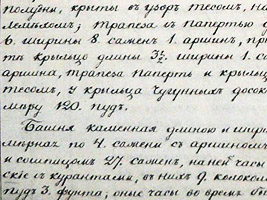 полуны, крыты въ узоръ тесомъ, на
лемѣхомъ; трапеза съ папертью д
6. ширины 8. саженъ 1. аршинъ, пр
то крыльцо длины 3½. ширины 1. са
аршина, трапеза паперть и крыль
тесомъ, у крыльца чугунныхъ досокъ
мѣру 120. пудъ.
Башня каменная длиною и шири
мѣрнахъ по 4. сажени съ аршиномъ
и сошпицомъ 27. саженъ, на ней часы
скіе съ курантами, въ нихъ 9. колоколъ
пудъ 3. фунта; оные часы во время бы